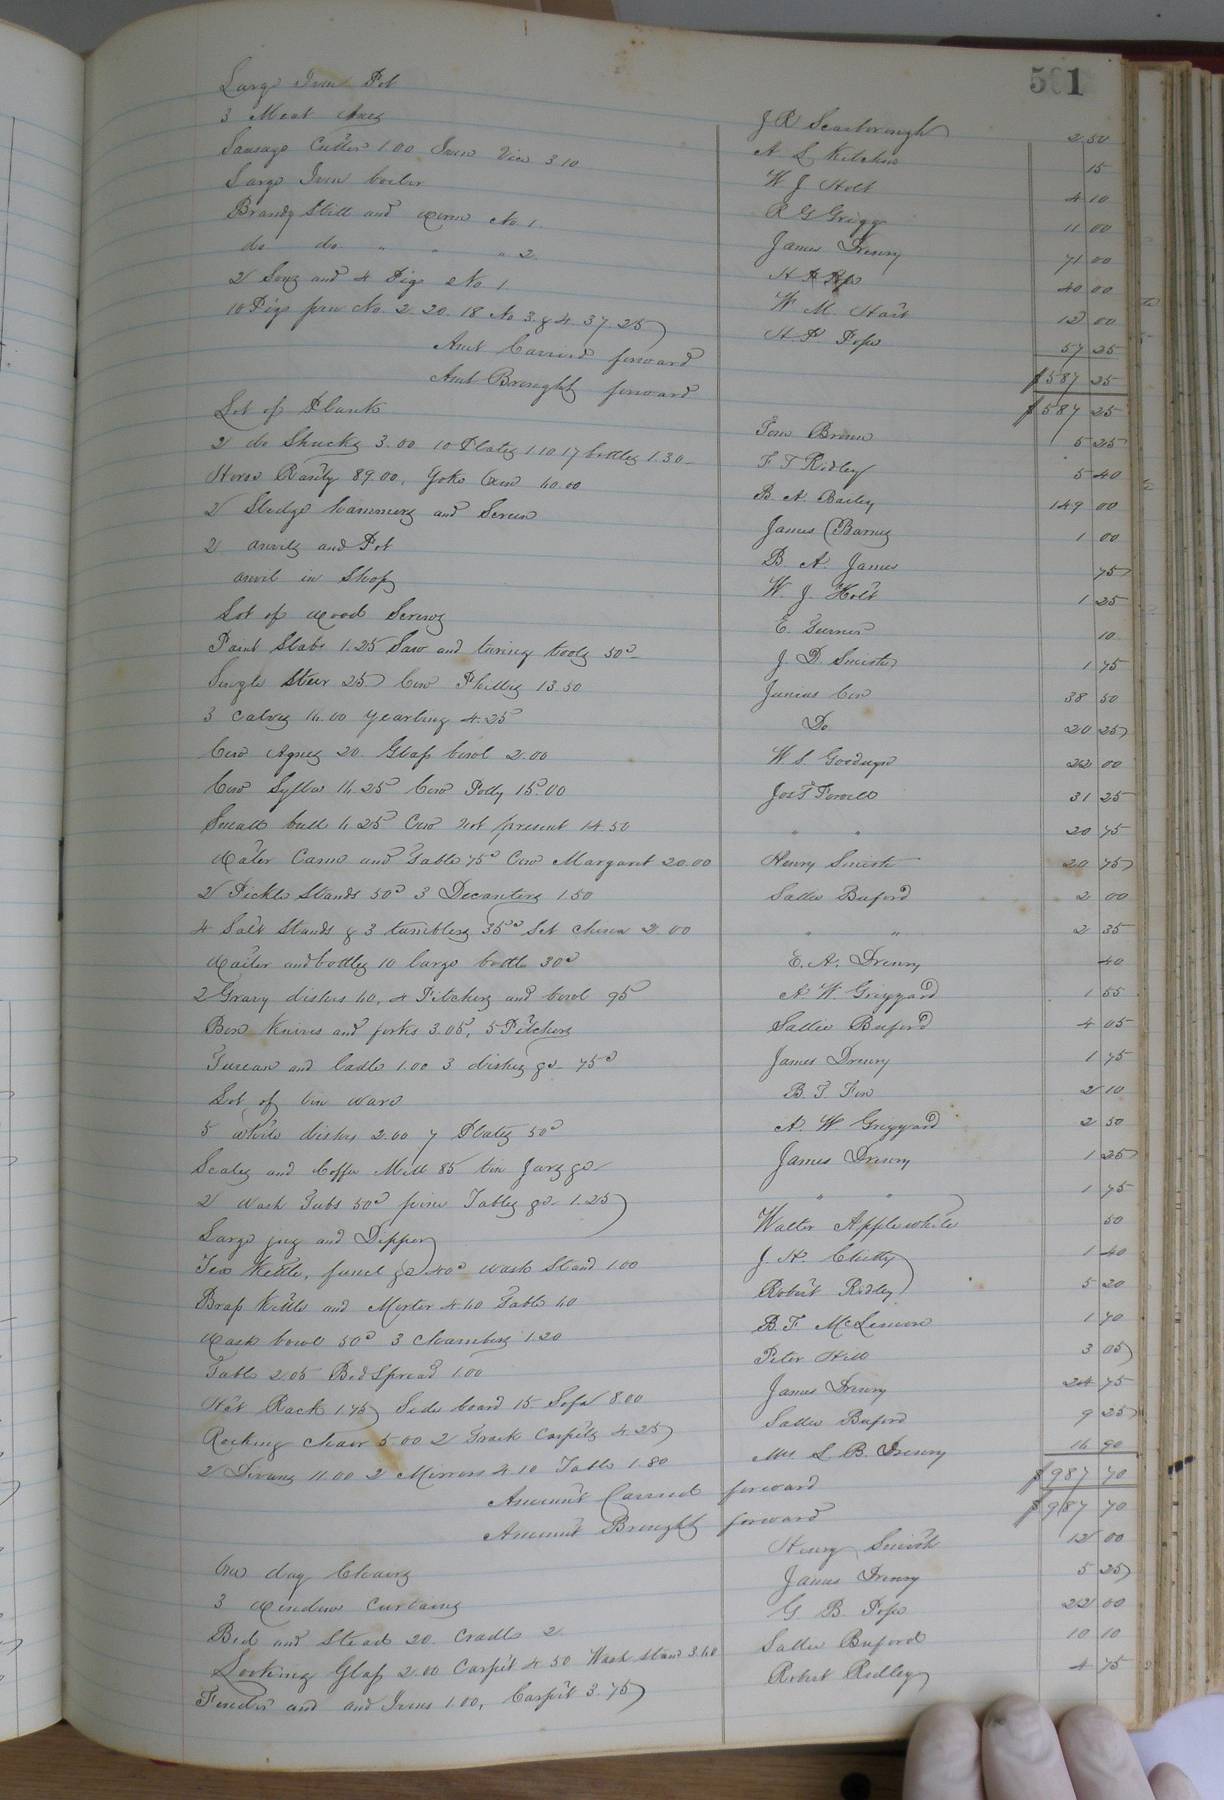 501
Large Iron Pot J R Scarborough 2 50
3 Meat A L Kitchen 15
Sausage Cutter 1.00 Iron Vice 3.10 W J Holt 4 10
Large Iron boiler R G Grigg 11 00
Brandy Still and worm No 1. James Drewry 71 00
do do " " " 2. 40 00
2 Sows and 4 Pigs No 1 W. M. Hart 12 00
10 Pigs from No. 2. 20. 18 No 3. & 4. 37.25 H P Pope 57 25
Amt Carried forward $587 25
Amt Brought forward $587 25
Lot of Plank Tom Brown 5 25
2 do Shucks 3.00 10 Plates 1.10 17 bottles 1.30 F T Ridley 5 40
Horse Rarity 89.00, Yoke Oxen 60.00 B. A. Bailey 149 00
2 Sledge hammers and Screw James Barnes 1 00
2 anvils and Pot B. A. James 75
anvil in Shop W. J. Holt 1 25
Lot of wood Screws E. Turner 10
Paint Slabs 1.25 Saw and tools 50c J. D. 1 75
Single Steer 25 Cow Phillis 13.50 Junius Cox 38 50
3 Calves 16.00 yearling 4.25 Do 20 25
Cow Agnes 20. Glass bowl 2.00 W S Goodwyn 22 00
Cow Sylla 16.25 Cow Polly 15.00 Jos T 31 25
Small bull 6.25 Cow not present 14.50 " " 20 75
Water Cans and Table 75c Cow Margaret 20.00 Henry Smith 20 75
2 Pickle Stands 50c 3 Decanters 1.50 Sallie Buford 2 00
4 Salt Stands & 3 tumblers 35c Set china 2.00 " " 2 35
Waiter and bottles 10 large bottle 30c E. A. Drewry 40
2 Gravy dishes 60, 4 Pitchers and bowl 95 A. W. Grizzard 1 55
Box Knives and forks 3.05, 5 Pitchers Sallie Buford 4 05
Tureen and ladle 1.00 3 dishes &c 75c James Drewry 1 75
Lot of tin ware B. T. 2 10
5 white dishes 2.00 7 Plates 50c A. W. Grizzard 2 50
Scales and Coffee Mill 85 tin Jars &c James Drewry 1 25
2 wash Tubs 50c pine Tables &c 1.25 " " 1 75
Large jug and Dipper Walter Applewhite 50
Tea Kettle, funnel &c 40c wash Stand 1.00 J. H. Chitty 1 40
Brass Kettle and Morter 4.60 Table 60 Robert Ridley 5 20
Wash bowl 50c 3 Chambers 1.20 B. F. McLemore 1 70
Table 2.05 Bed Spread 1.00 Peter Hill 3 05
Hat Rack 1.75 Side board 15. Sofa 8.00 James Drewry 24 75
Rocking chair 5.00 2 Carpets 4.25 Sallie Buford 9 25
2 Divans 11.00 2 Mirrors 4.10 Table 1.80 Mrs L B. Drewry 16 90
Amount Carried forward $987 70
Amount Brought forward $987 70
Chairs Henry Smith 12 00
3 Window Curtains James Drewry 5 25
Bed and Stead 20. Cradle 2. G B. Pope 22 00
Looking Glass 2.00 Carpet 4.50 Wash Stand 3.60 Sallie Buford 10 10
Fender and and Irons 1.00, Carpet 3.75 Robert Ridley 4 75